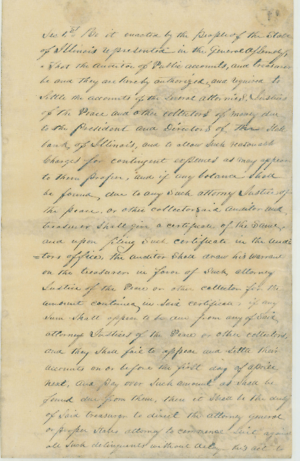 Sec 1st. Be it enacted by the People of the State
of Illinois represented in the General Assembly,
That the Auditor of Public accounts, and treasurer
be and they are hereby authorized, and required to
Settle the accounts of the Several attornies, Justices
of the Peace and other collectors of money due
to the President and Directors of the State
bank of Illinois, and to allow Such reasonable
Charges for contingent expenses as may appear
to them proper, and if any balance Shall
be found due to any Such attorney Justice of
the peace, or other collector, said auditor and
treasurer Shall give a certificate of the Same,
and upon filing Such certificate in the Audi
tors office, the auditor Shall draw his warrant
on the treasurer in favor of Such attorney
Justice of the Peace or other collector for the
amount contained in Said certificate; if any
Sum Shall appear to be due from any of Said
attornies Justices of the Peace or other collectors
and they Shall fail to appear and Settle their
accounts on or before the first day of
next, and pay over Such amount as Shall be
found due from them, then it Shall be the duty
of Said treasurer to direct the attorney general
or proper States attorney to commence Suit against
all Such delinquents without delay, this act to